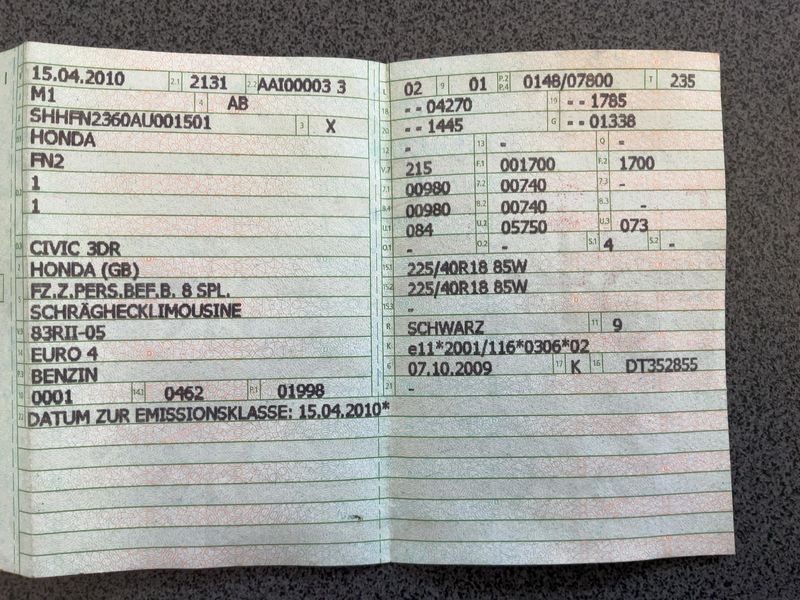 15.04.2010 2.1 2131 2.2 AAI00003 3
M1 4 AB
SHHFN2360AU001501 3 X
HONDA
FN2
1
1
CIVIC 3DR
HONDA (GB)
FZ.Z.PERS.BEF.B. 8 SPL.
SCHRÄGHECKLIMOUSINE
83RII-05
EURO 4
BENZIN
0001 14.1 0462 P.1 01998
DATUM ZUR EMISSIONSKLASSE: 15.04.2010*
L 02 9 01 P.2 P.4 0148/07800 T 235
18 --04270 19 --1785
20 --1445 G --01338
12 - 13 - Q -
V.7 215 F.1 001700 F.2 1700
7.1 00980 7.2 00740 7.3 -
8.1 00980 8.2 00740 8.3 -
U.1 084 U.2 05750 U.3 073
O.1 - O.2 - S.1 4 S.2 -
15.1 225/40R18 85W
15.2 225/40R18 85W
15.3 -
R SCHWARZ 11 9
K e11*2001/116*0306*02
6 07.10.2009 17 K 16 DT352855
21 -